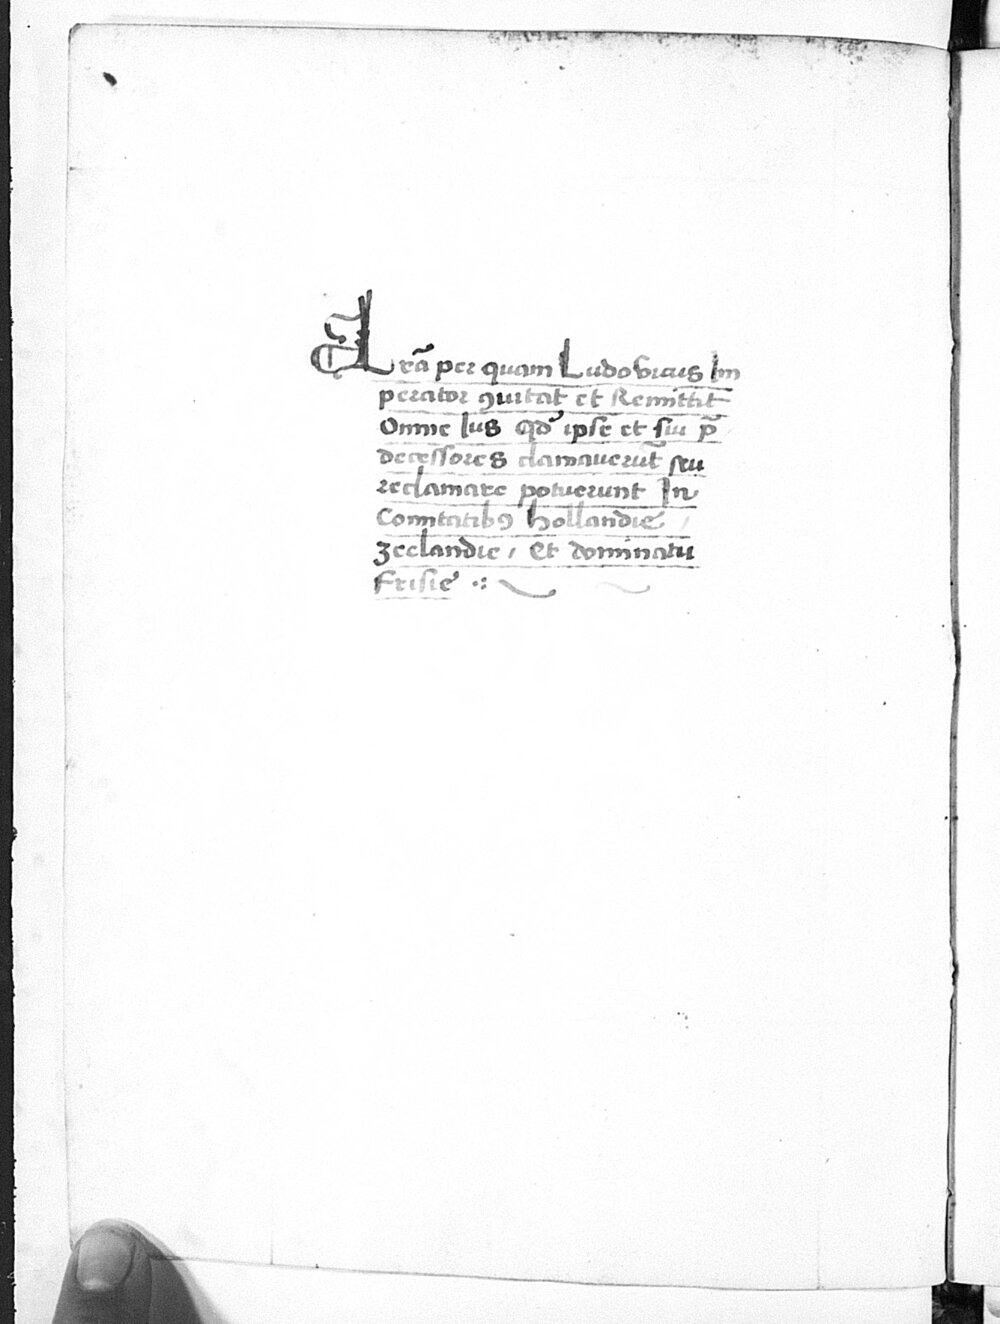 Lr̄a per quam Ludovicus Im
perator ꝯuitat et Remittit
Omne Ius qd' ipse et sui p̄
decessores clamaverūt seu
reclamare potuerunt In
Comitatibꝰ Hollandie /
zeelandie / Et dominatu
frisie ·: